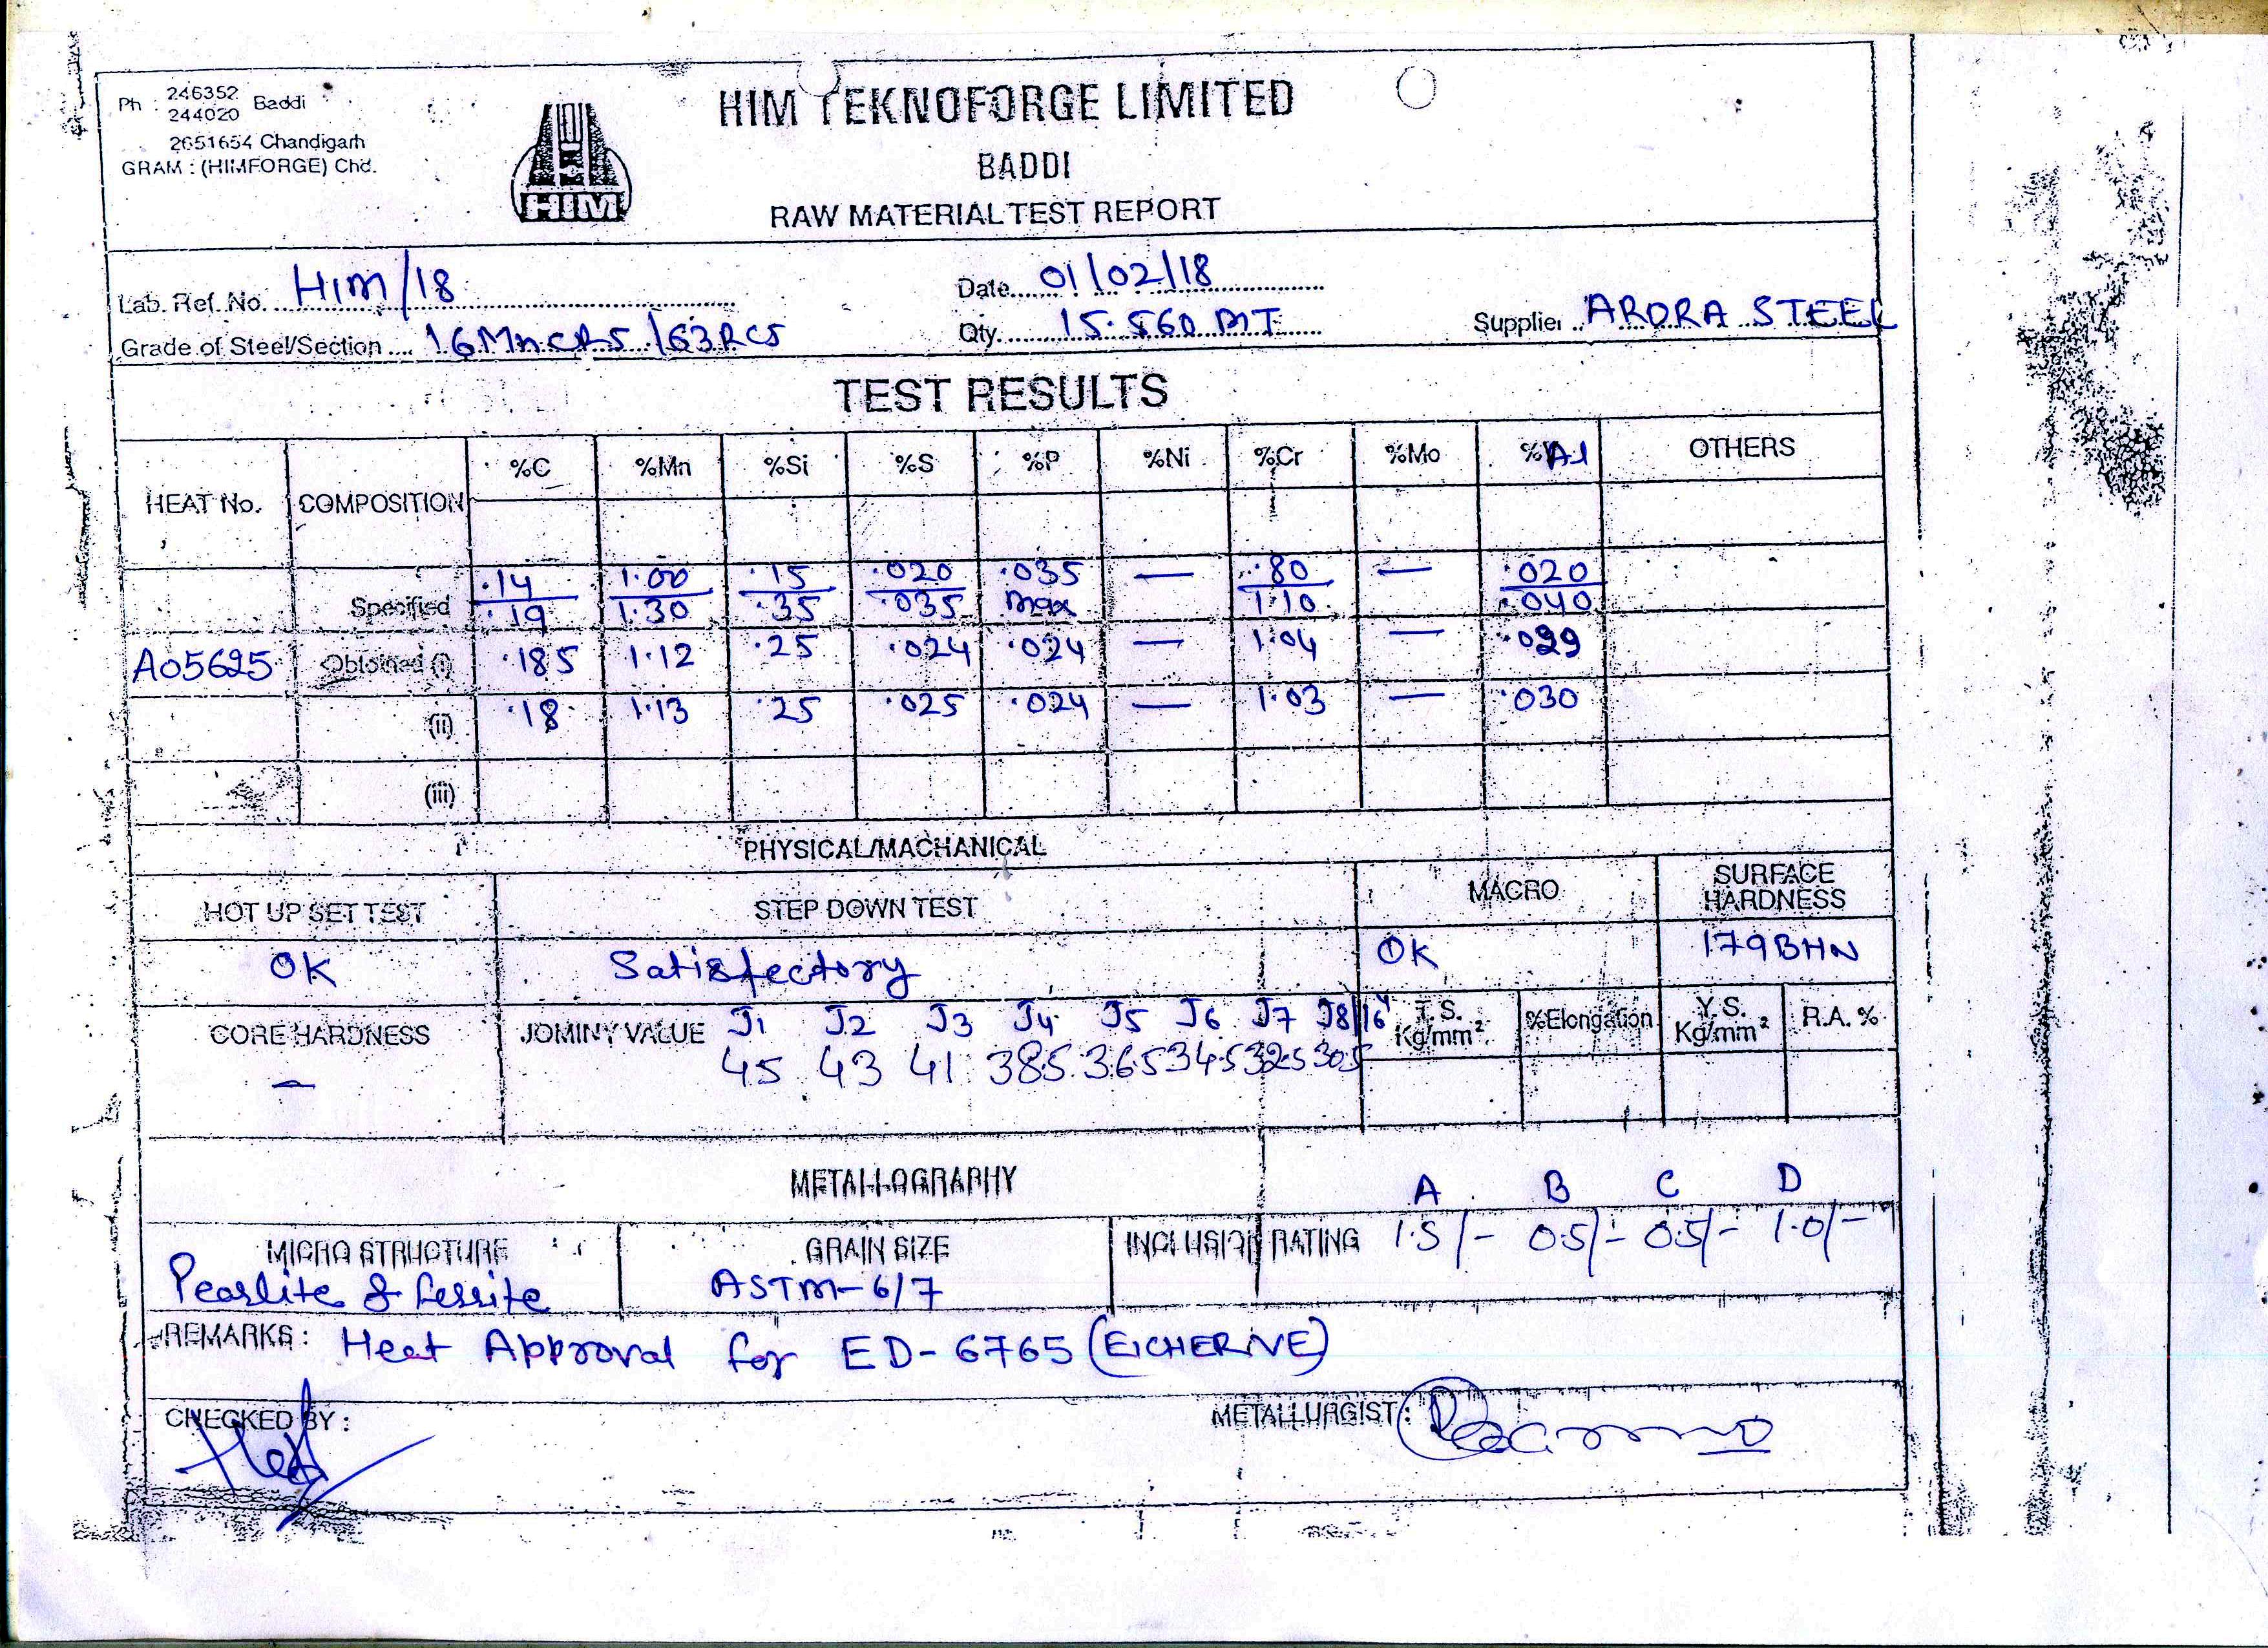 Ph : 246352 Baddi
244020
2651654 Chandigarh
GRAM : (HIMFORGE) Chd.
HIM
HIM TEKNOFORGE LIMITED
BADDI
RAW MATERIAL TEST REPORT
Lab. Ref. No. HIM/18
Date 01/02/18
Grade of Steel/Section 16MnCR5 /63RCS
Qty. 15.560 MT
Supplier ARORA STEEL
TEST RESULTS
HEAT No. COMPOSITION %C %Mn %Si %S %P %Ni %Cr %Mo %Al OTHERS
Specified .14/.19 1.00/1.30 .15/.35 .020/.035 .035 max — .80/1.10 — .020/.040
A05625 Obtained (i) .185 1.12 .25 .024 .024 — 1.04 — .029
(ii) .18 1.13 .25 .025 .024 — 1.03 — .030
(iii)
PHYSICAL/MACHANICAL
HOT UP SET TEST STEP DOWN TEST MACRO SURFACE HARDNESS
OK Satisfectory OK 179BHN
CORE HARDNESS JOMINY VALUE J1 J2 J3 J4 J5 J6 J7 J8/16" T.S. Kg/mm² %Elongation Y.S. Kg/mm² R.A. %
— 45 43 41 38.5 36.5 34.5 32.5 30.5
METALLOGRAPHY A B C D
MICRO STRUCTURE GRAIN SIZE INCLUSION RATING 1.5/- 0.5/- 0.5/- 1.0/-
Pearlite & ferrite ASTM-6/7
REMARKS : Heat Approval for ED-6765 (EICHER/VE)
CHECKED BY :
METALLURGIST :